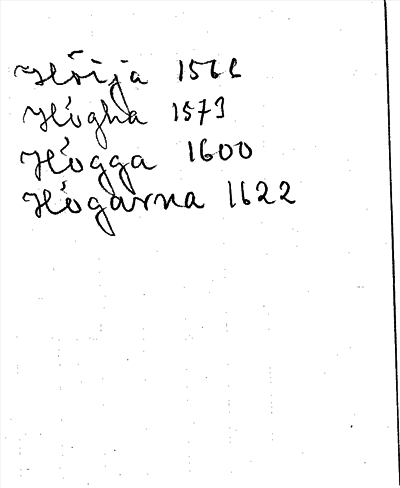 Höija 1561
Högha 1573
Högga 1600
Högarna 1622